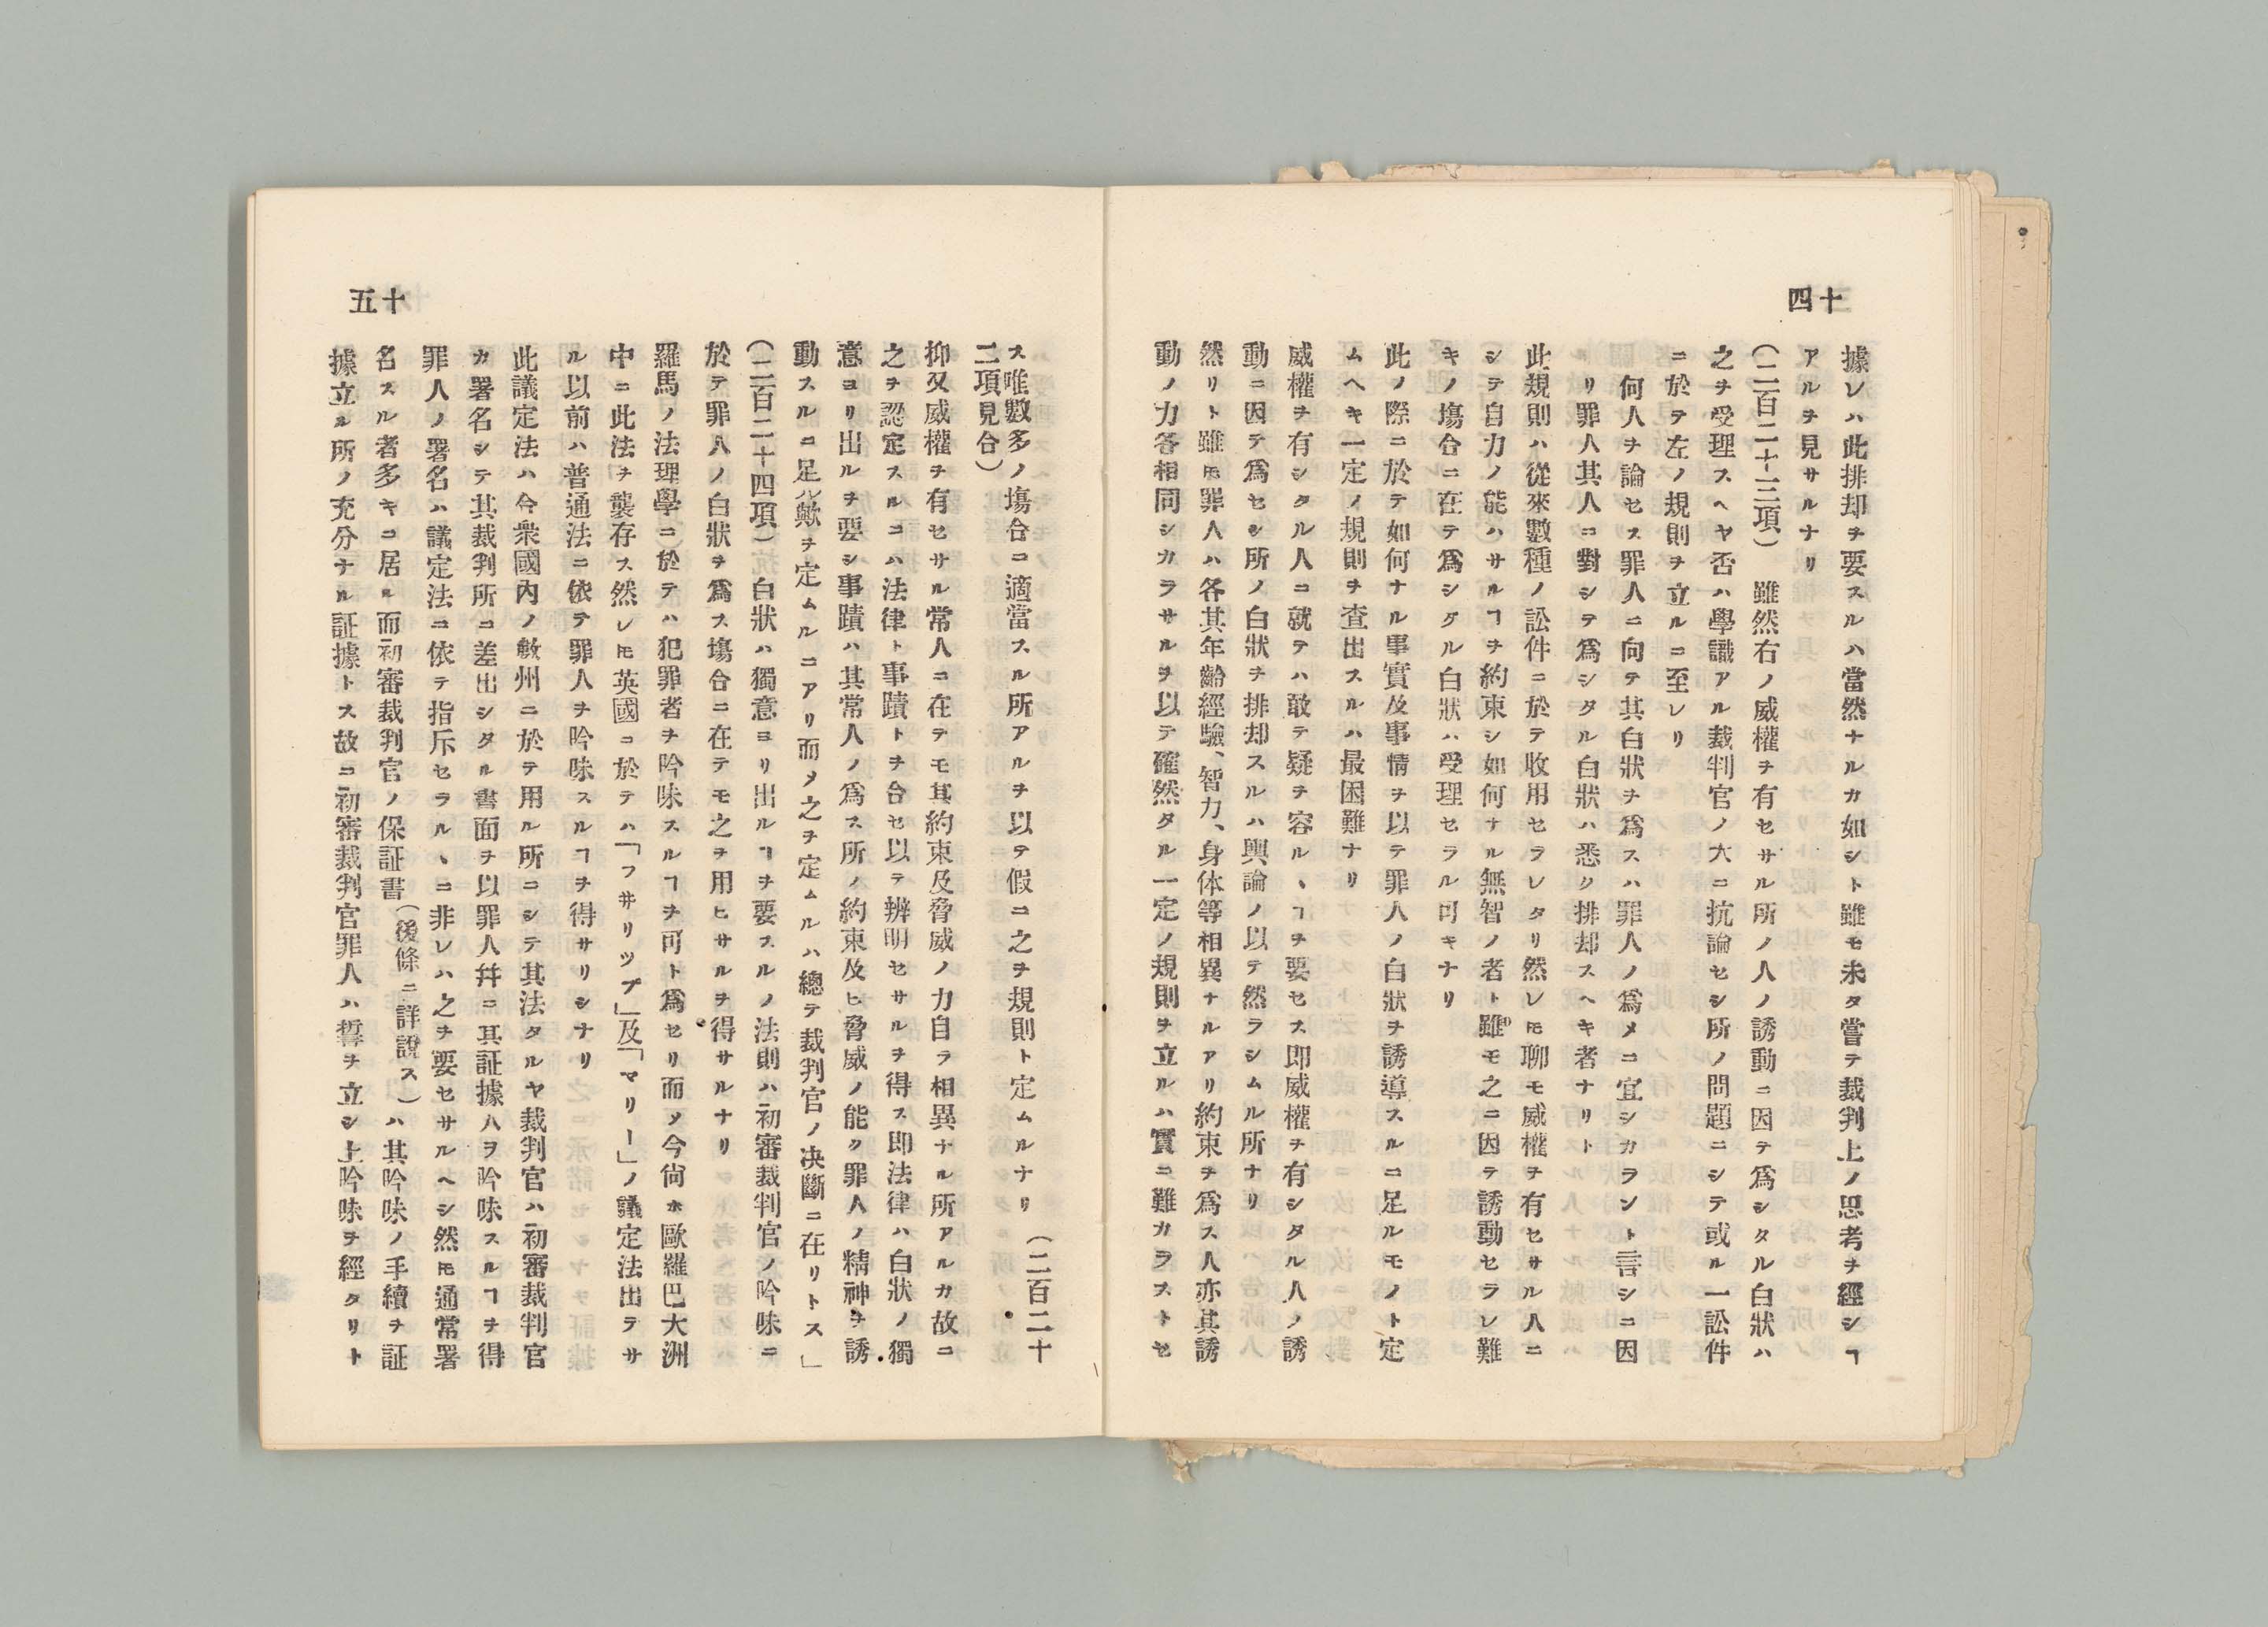 十四
據レハ此排却ヲ要スルハ當然ナルカ如シト雖モ未タ嘗テ裁判上ノ思考ヲ經シヿ
アルヲ見サルナリ
(二百二十三項) 雖然右ノ威權ヲ有セサル所ノ人ノ誘動ニ因テ爲シタル白狀ハ
之ヲ受理スヘヤ否ハ學識アル裁判官ノ大ニ抗論セシ所ノ問題ニシテ或ル一訟件
ニ於テ左ノ規則ヲ立ルニ至レリ
何人ヲ論セス罪人ニ向テ其白狀ヲ爲スハ罪人ノ爲メニ宜シカラント言シニ因
リ罪人其人ニ對シテ爲シタル白狀ハ悉ク排却スヘキ者ナリト
此規則ハ從來數種ノ訟件ニ於テ收用セラレタリ然レ𪜈聊モ威權ヲ有セサル人ニ
シテ自力ノ能ハサルヿヲ約束シ如何ナル無智ノ者ト雖モ之ニ因テ誘動セラレ難
キノ塲合ニ在テ爲シタル白狀ハ受理セラル可キナリ
此ノ際ニ於テ如何ナル事實及事情ヲ以テ罪人ノ白狀ヲ誘導スルニ足ルモノト定
ムヘキ一定ノ規則ヲ査出スルハ最困難ナリ
威權ヲ有シタル人ニ就テハ敢テ疑ヲ容ルヽヿヲ要セス即威權ヲ有シタル人ノ誘
動ニ因テ爲セシ所ノ白狀ヲ排却スルハ輿論ノ以テ然ラシムル所ナリ
然リト雖𪜈罪人ハ各其年齡經驗、智力、身体等相異ナルアリ約束ヲ爲ス人亦其誘
動ノ力各相同シカラサルヲ以テ確然タル一定ノ規則ヲ立ルハ實ニ難カラストセ
十五
ス唯數多ノ塲合ニ適當スル所アルヲ以テ假ニ之ヲ規則ト定ムルナリ (二百二十
二項見合)
抑又威權ヲ有セサル常人ニ在テモ其約束及脅威ノ力自ラ相異ナル所アルカ故ニ
之ヲ認定スルニハ法律ト事蹟トヲ合セ以テ辨明セサルヲ得ス即法律ハ白狀ノ獨
意ヨリ出ルヲ要シ事蹟ハ其常人ノ爲ス所ノ約束及ヒ脅威ノ能ク罪人ノ精神ヲ誘
動スルニ足ル歟ヲ定ムルニアリ而メ之ヲ定ムルハ總テ裁判官ノ决斷ニ在リトス」
(二百二十四項) 白狀ハ獨意ヨリ出ルヿヲ要スルノ法則ハ初審裁判官ノ吟味ニ
於テ罪人ノ白狀ヲ爲ス塲合ニ在テモ之ヲ用ヒサルヲ得サルナリ
羅馬ノ法理學ニ於テハ犯罪者ヲ吟味スルヿヲ可ト爲セリ而メ今尙ホ歐羅巴大洲
中ニ此法ヲ襲存ス然レ𪜈英國ニ於テハ「フ井リツプ」及「マリー」ノ議定法出テサ
ル以前ハ普通法ニ依テ罪人ヲ吟味スルヿヲ得サリシナリ
此議定法ハ合衆國內ノ數州ニ於テ用ル所ニシテ其法タルヤ裁判官ハ初審裁判官
カ署名シテ其裁判所ニ差出シタル書面ヲ以罪人幷ニ其証據人ヲ吟味スルヿヲ得
罪人ノ署名ハ議定法ニ依テ指斥セラルヽニ非レハ之ヲ要セサルヘシ然𪜈通常署
名スル者多キニ居ル而初審裁判官ノ保証書(後條ニ詳說ス)ハ其吟味ノ手續ヲ証
據立ル所ノ充分ナル証據トス故ニ初審裁判官罪人ハ誓ヲ立シ上吟味ヲ經タリト